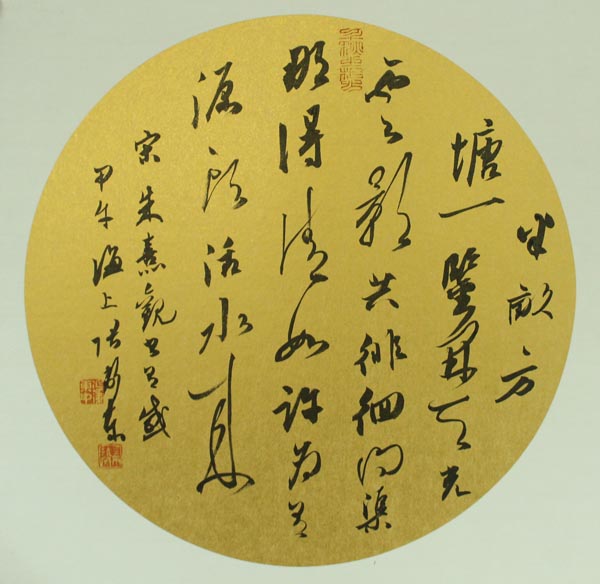 半畝方
塘一鑒開天光
雲影共徘徊問渠
那得清如許為有
源頭活水來
宋朱熹觀書有感
甲午海上張東